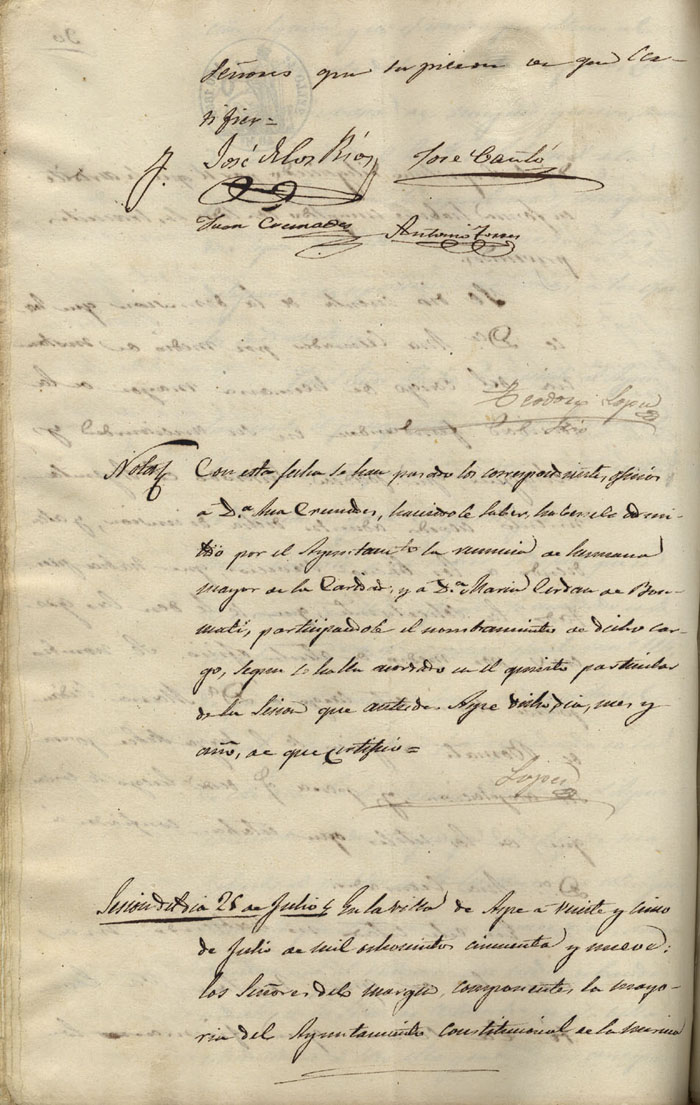 Señores que supieron de que cer-
tifico=
José de los Ríos José Cantó
Juan Cremades Antonio Torres
Teodoro Lopez
Srio
Nota Con esta fecha se han pasado los correspondientes oficios
á D.ª Ana Cremades, haciendole saber, haberselo admi-
tido por el Ayuntamto la renuncia de hermana
mayor de la Caridad; y á D.ª Maria Cerdan de Bor-
mati, participandole el nombramiento de dicho car-
go, segun se halla acordado en el quinto particular
de la Sesion que antecede. Aspe dicho dia, mes y
año, de que certifico=
Lopez
Sesion del dia 25 de Julio En la villa de Aspe á veinte y cinco
de Julio de mil ochocientos cincuenta y nueve:
los Señores del margen, componentes la mayo-
ria del Ayuntamiento Constitucional de la misma